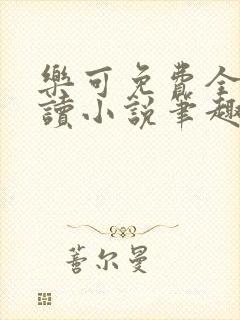 樂可免費全
讀小說筆趣
蓍尔曼